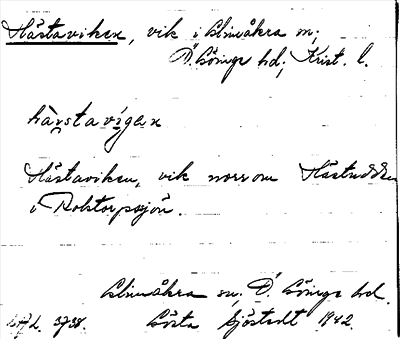 Hästaviken, vik i Glimåkra sn;
Ö. Göinge hd; Krist. l.
hàrstavígen
Hästaviken, vik norr om Hästudden
i Rolstorpssjön.
Glimåkra sn, Ö. Göinge hd.
3738. Gösta Sjöstedt 1942.